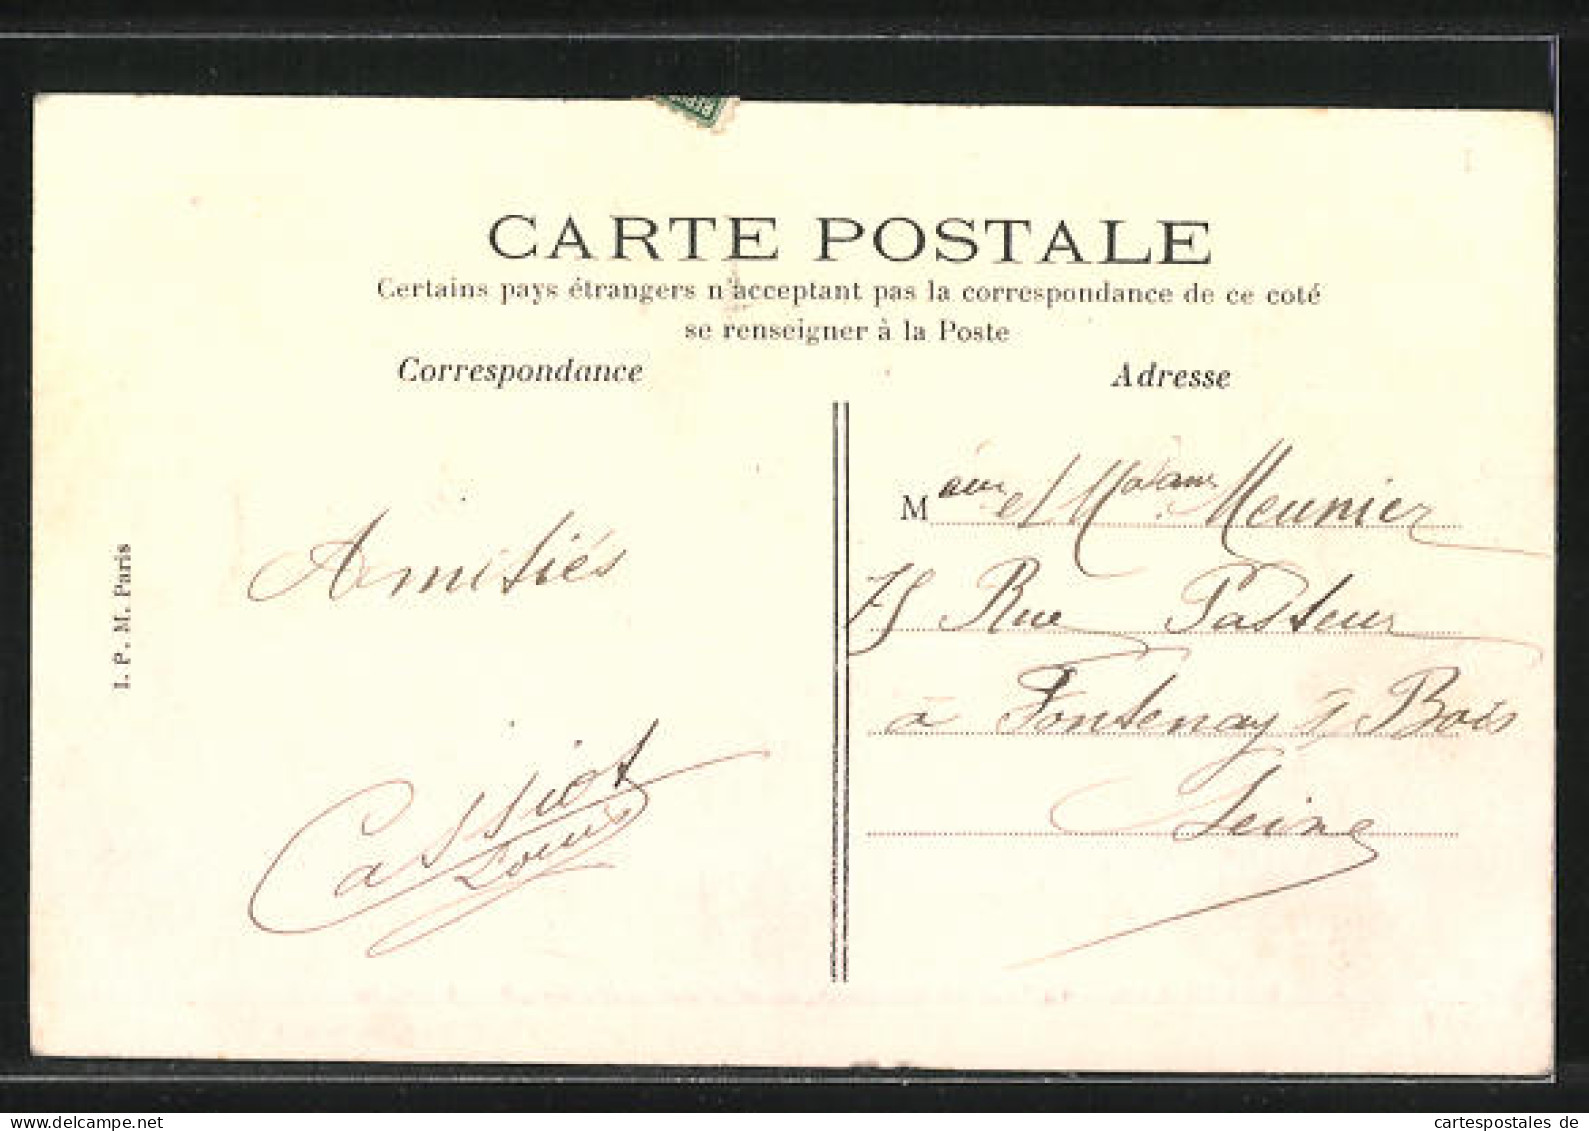 CARTE POSTALE
Certains pays étrangers n'acceptant pas la correspondance de ce coté
se renseigner à la Poste
Correspondance
Adresse
Amitiés
Cassiot
Louis
M et Madame Meunier
75 Rue Pasteur
à Fontenay s/ Bois
Seine
I. P. M. Paris
cartespostales de